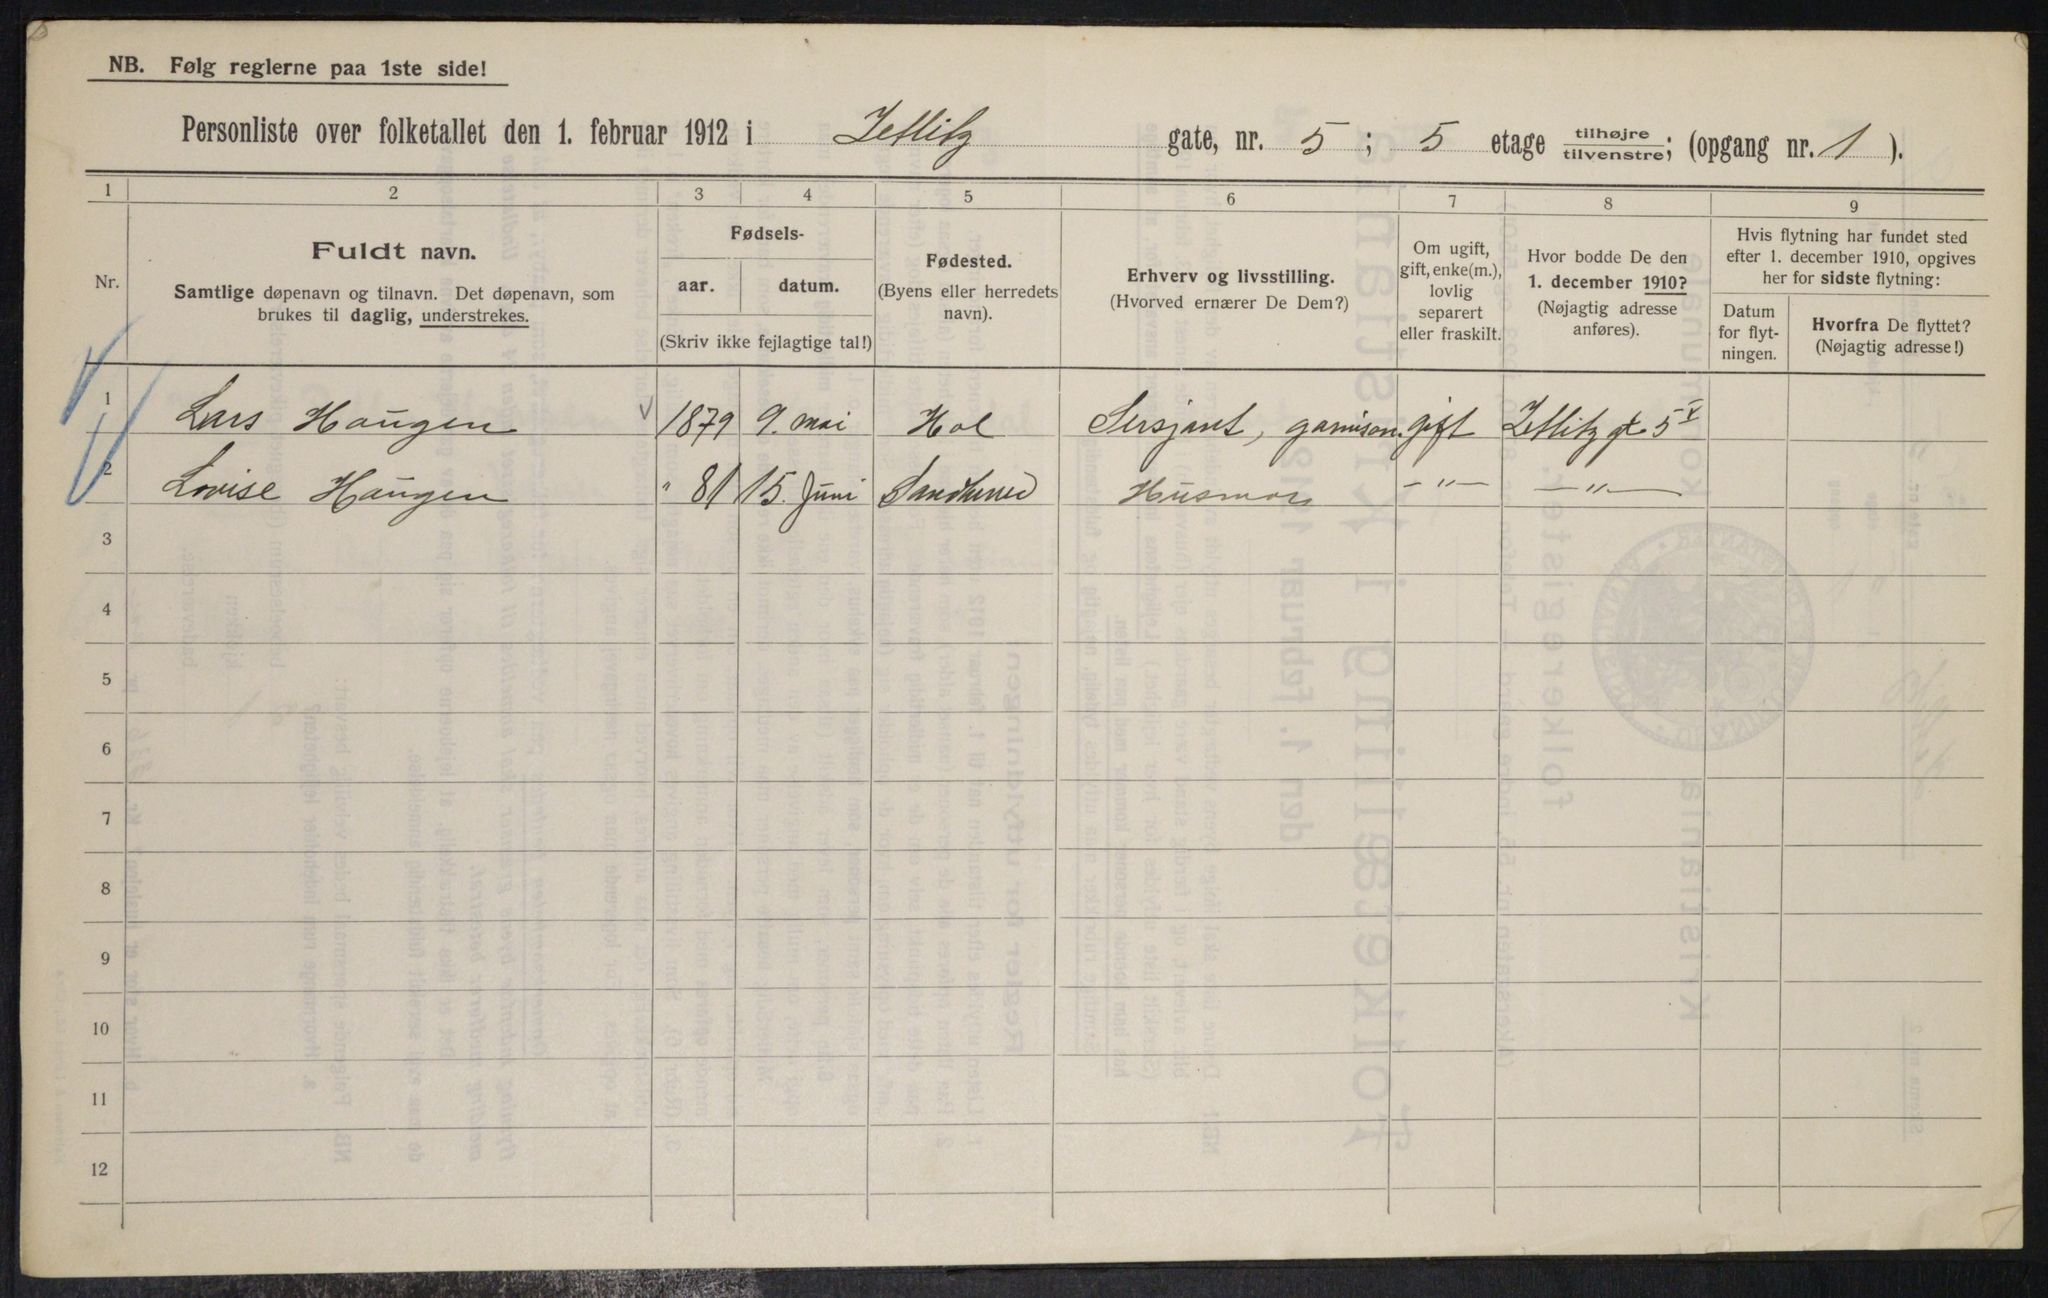 NB. Følg reglerne paa 1ste side!
Personliste over folketallet den 1. februar 1912 i Zetlitz gate, nr. 5 ; 5 etage tilhøjre/tilvenstre; (opgang nr. 1 ).
1 2 3 4 5 6 7 8 9
Nr.
Fuldt navn.
Samtlige døpenavn og tilnavn. Det døpenavn, som
brukes til daglig, understrekes.
Fødsels-
aar. datum.
(Skriv ikke fejlagtige tal!)
Fødested.
(Byens eller herredets
navn).
Erhverv og livsstilling.
(Hvorved ernærer De Dem?)
Om ugift,
gift, enke(m.),
lovlig
separert
eller fraskilt.
Hvor bodde De den
1. december 1910?
(Nøjagtig adresse
anføres).
Hvis flytning har fundet sted
efter 1. december 1910, opgives
her for sidste flytning:
Datum
for flyt-
ningen.
Hvorfra De flyttet?
(Nøjagtig adresse!)
1 Lars Haugen 1879 9. mai Hol Sersjant, garnison. gift Zetlitz gt. 5 V
2 Lovise Haugen " 81 15. juni Sandherred Husmor -"- -"-
3
4
5
6
7
8
9
10
11
12